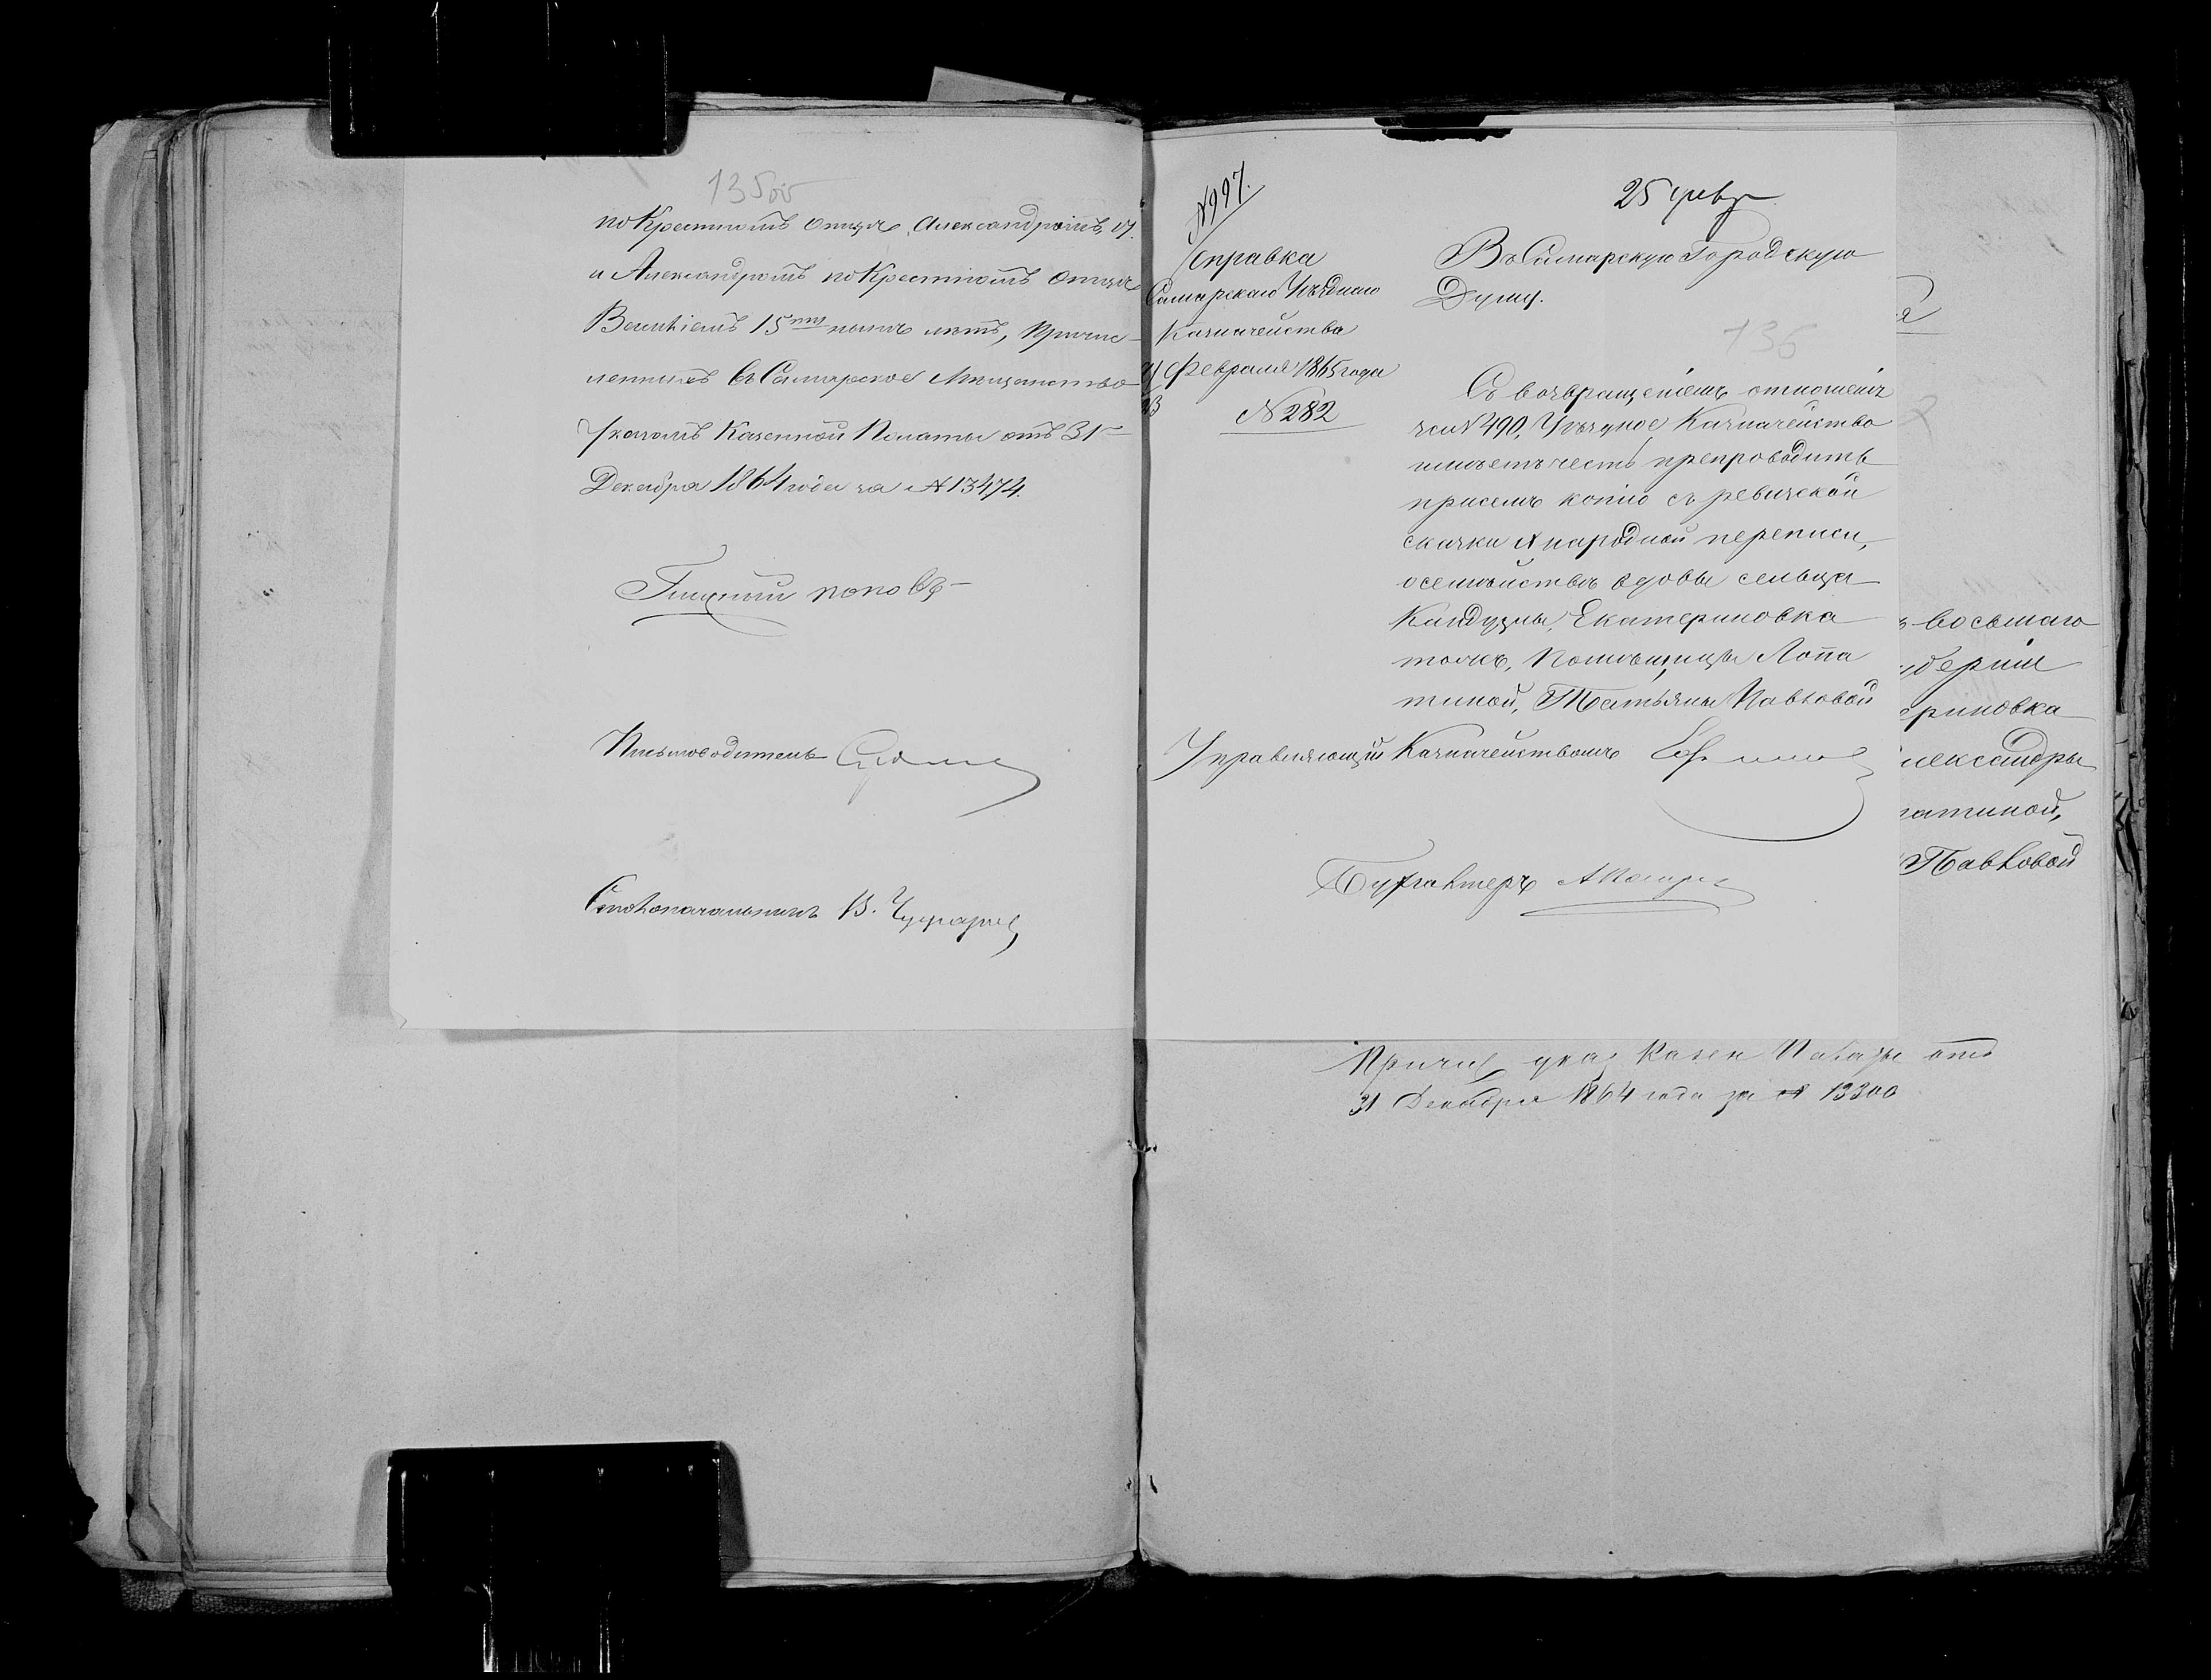 135об
по Крестномъ отцѣ Александромъ, 17.
и Александромъ по Крестномъ отцѣ
15ти лѣтъ, причис-
леннымъ въ Самарское Мещанство
Указомъ Казенной Палаты отъ 31
Декабря 1864 года за № 13474.
Гласный Поповъ
Письмоводитель
Столоначальникъ В.
№ 997.
25 февр
Справка
Самарскаго Уѣзднаго
Казначейства
Февраля 1865 года
№ 282
Въ Самарскую Городскую
Думу.
136
Съ возвращеніемъ отношенія
за № 490, Уѣздное Казначейство
имѣетъ честь препроводить
присемъ копію съ ревизской
сказки X народной переписи,
о семействѣ вдовы сельца
Кандузлы, Екатериновка
тожъ, Помѣщицы Лопа
тиной, Татьяны Павловой
Управляющій Казначействомъ
Бухгалтеръ
восьмаго
уберніи
ериновка
лександры
патиной,
Павловой
Причис указ Казен Палаты отъ
31 Декабря 1864 года за № 13300